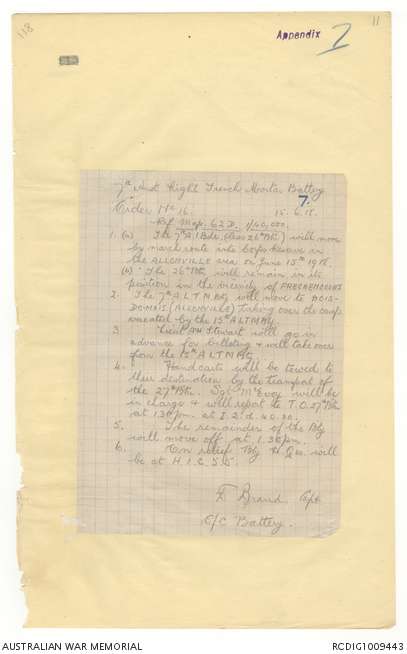 118
Appendix 7
11
7th Aust Light Trench Mortar Battery
7.
Order No 16. 15.6.18.
Ref Map. 62D. 1/40,000.
1. (a) The 7th A.I Bde. (less 26th Btn.) will move
by march route into Corps Reserve in
the ALLONVILLE area on June 15th 1918.
(b). The 26th Btn. will remain in its
position in the vicinity of FRECHENCOURT
2. The 7th A.L.T.M.By will move to BOIS-
DOMAIS (ALLONVILLE) taking over the camp
vacated by the 15th A.L.T.M.By.
3. Lieut Stewart will go in
advance for billeting & will take over
from the 15th A.L.T.M.By.
4. Handcarts will be towed to
their destination by the transport of
the 27th Btn. Sgt McEvoy will be
in charge & will report to T.O. 27th Btn
at 1.30pm. at I.2.d.
5. The remainder of the Bty
will move off at 1.30pm.
6. On relief Bty H.Qrs. will
be at
F. Brand Capt
O/C Battery.
AUSTRALIAN WAR MEMORIAL
RCDIG1009443